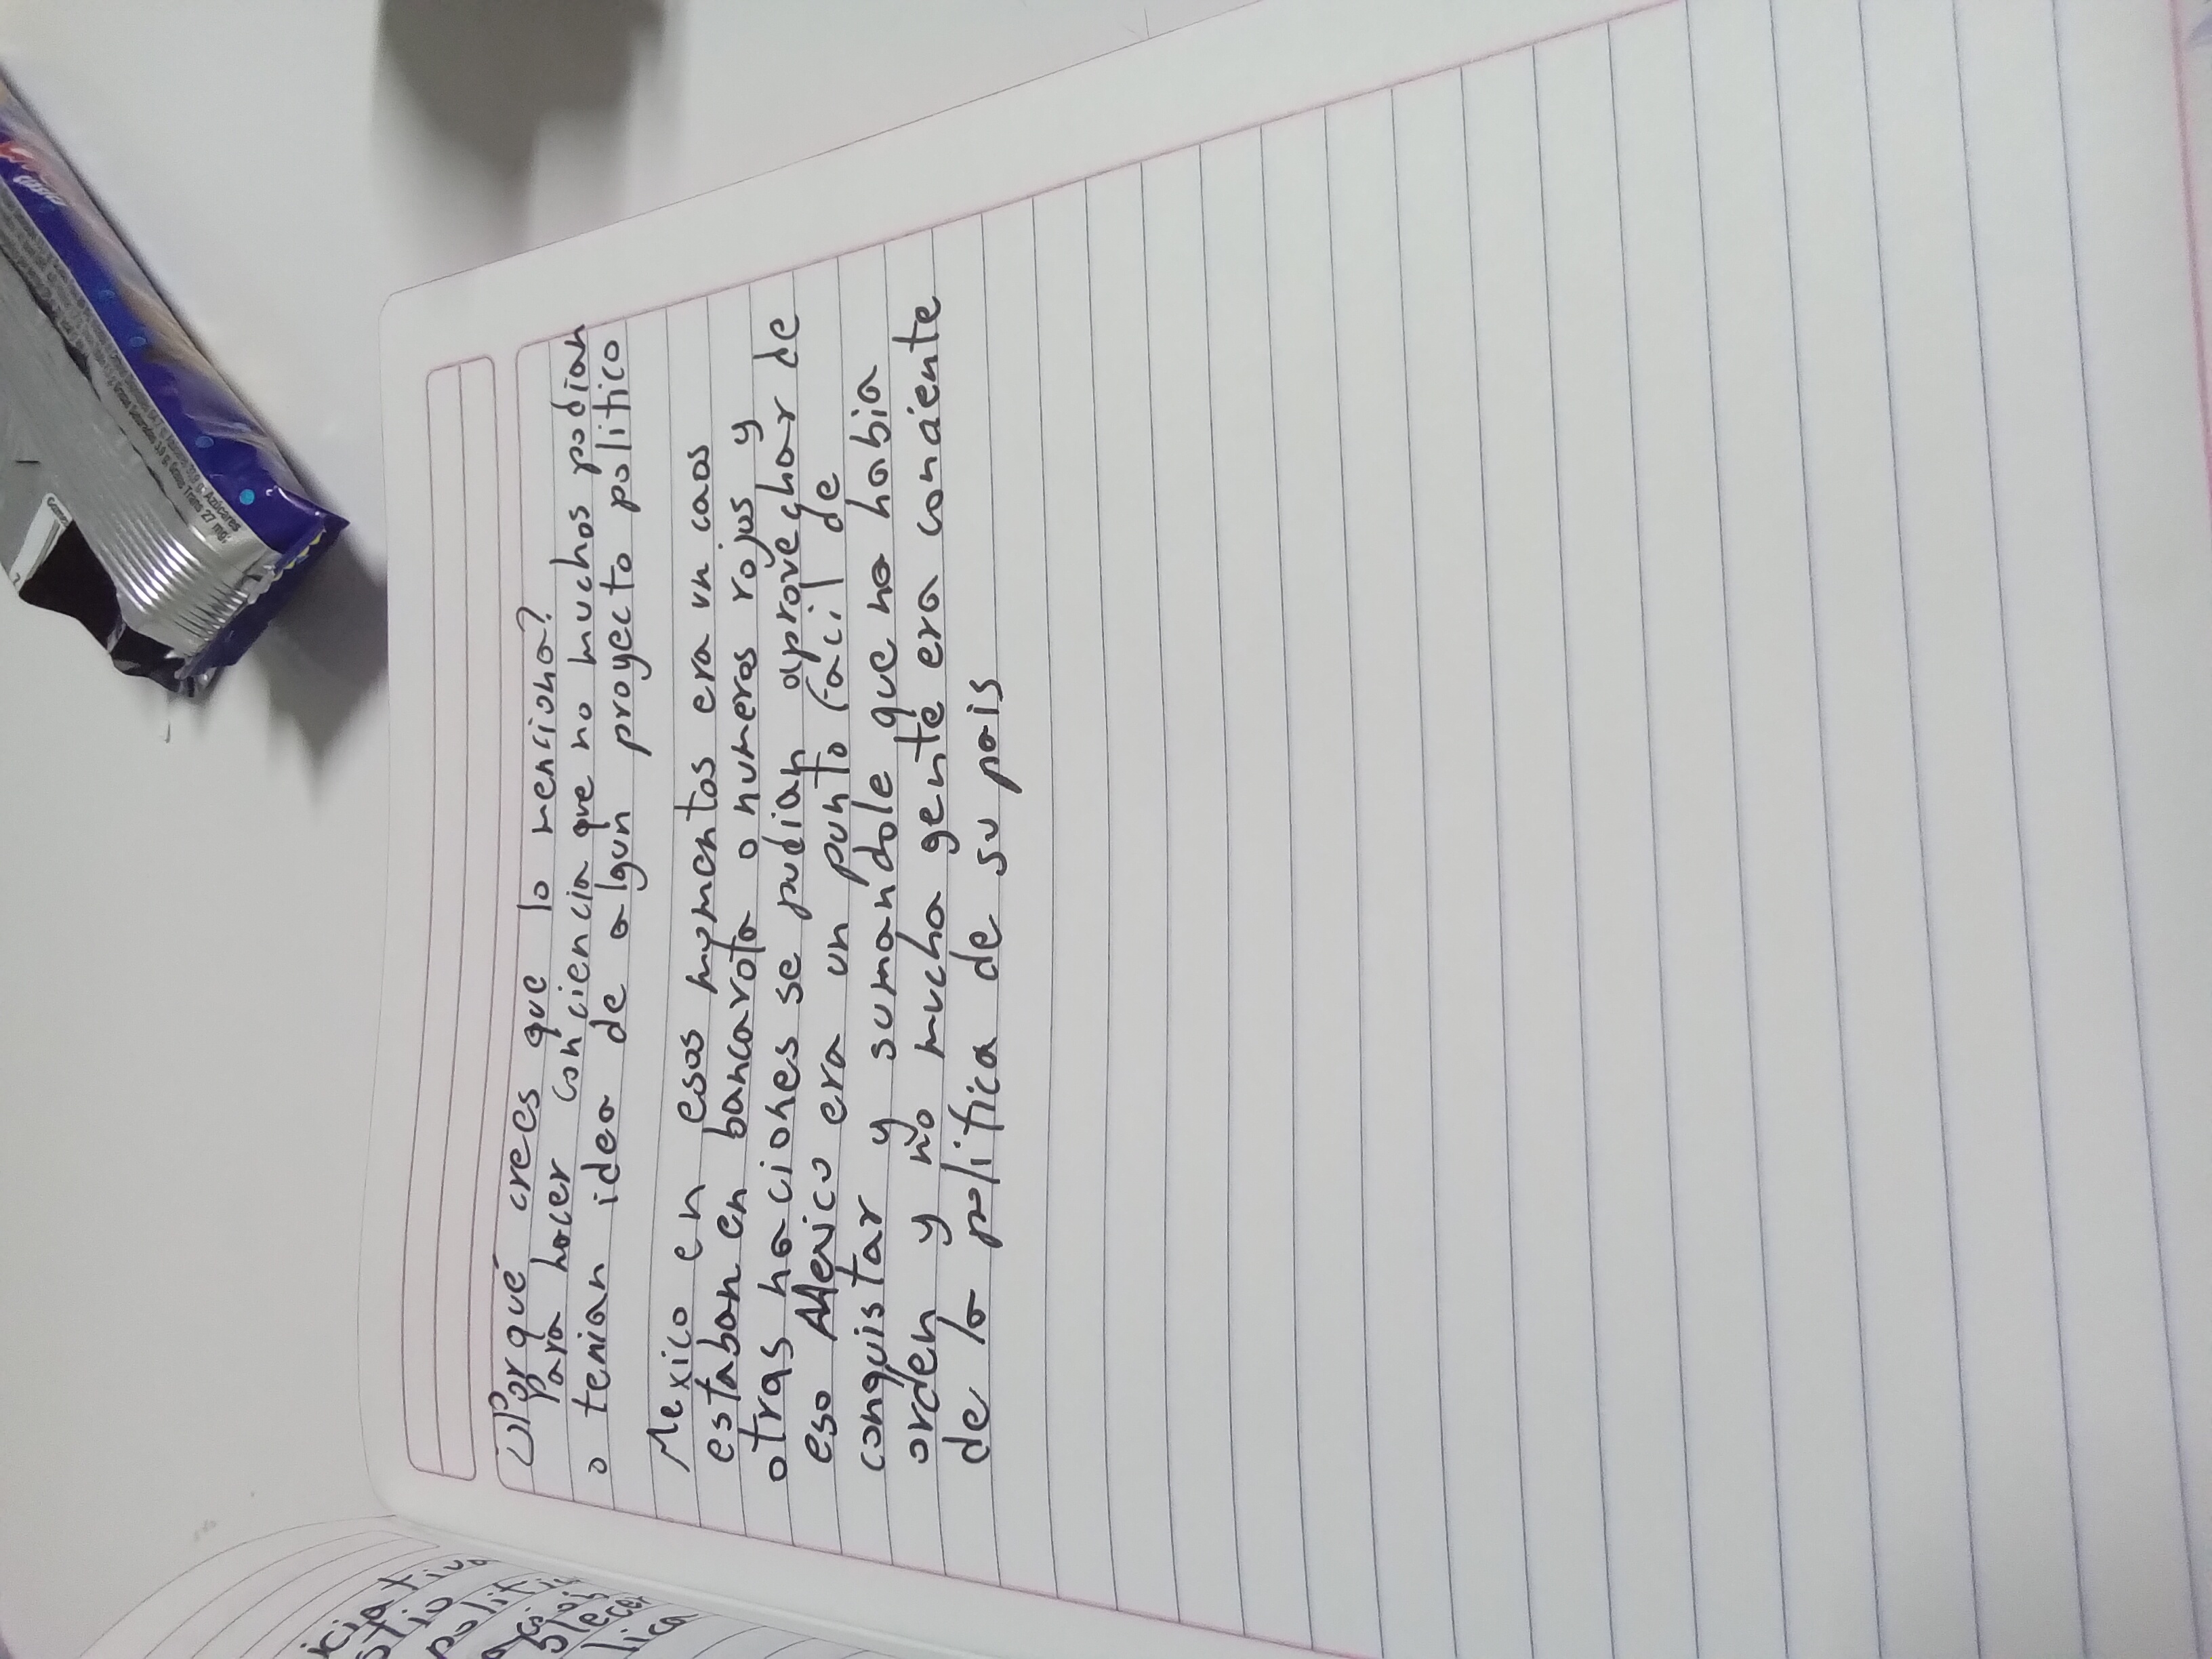 ¿Porqué crees que lo menciona?
Para hacer conciencia que no muchos podian
o tenian idea de algun proyecto politico
Mexico en esos momentos era un caos
estaban en bancarota o numeros rojos y
otras naciones se pudian aprovechar de
eso Mexico era un punto facil de
conquistar y sumandole que no habia
orden y no mucha gente era conciente
de la politica de su pais
icia tiva
politi
blecer
lica
Azúcares
Grasas Trans 27 mg.